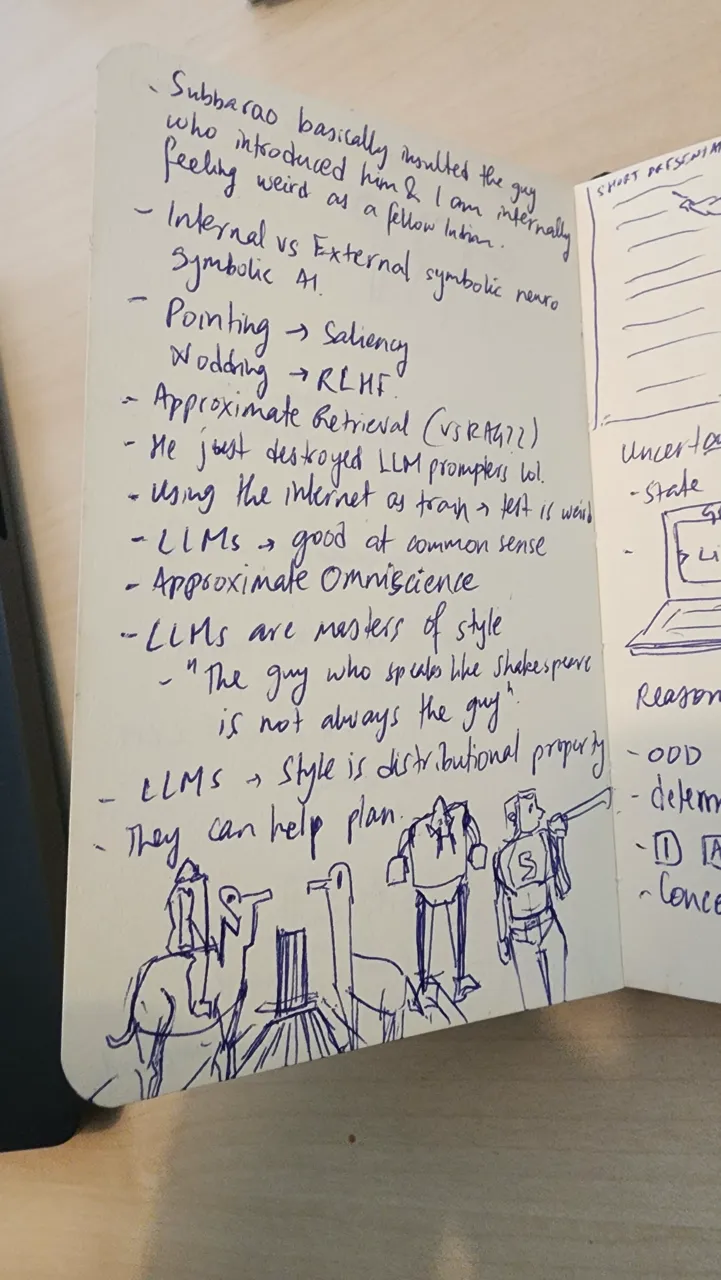 - Subbarao basically insulted the guy
who introduced him & I am internally
feeling weird as a fellow Indian.
- Internal vs External symbolic neuro
symbolic AI.
- Pointing → Saliency
Nodding → RLHF.
- Approximate Retrieval (vs RAG??)
- He just destroyed LLM prompters lol.
- Using the internet as train → test is weird
- LLMs → good at common sense
- Approximate Omniscience
- LLMs are masters of style
- "The guy who speaks like Shakespeare
is not always the guy".
- LLMs → Style is distributional property
- They can help plan.
S
SHORT PRESENTA
Uncerta
- State
Li
Reason
- OOD
- determ
- I A
- Conce